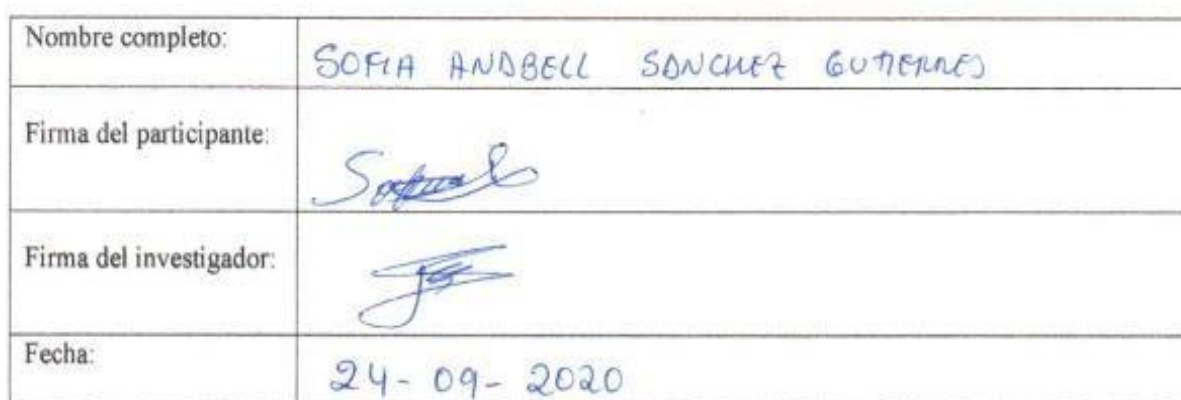 Nombre completo:
SOFIA ANABELL SANCHEZ GUTIERRES
Firma del participante:
Firma del investigador:
Fecha:
24-09-2020